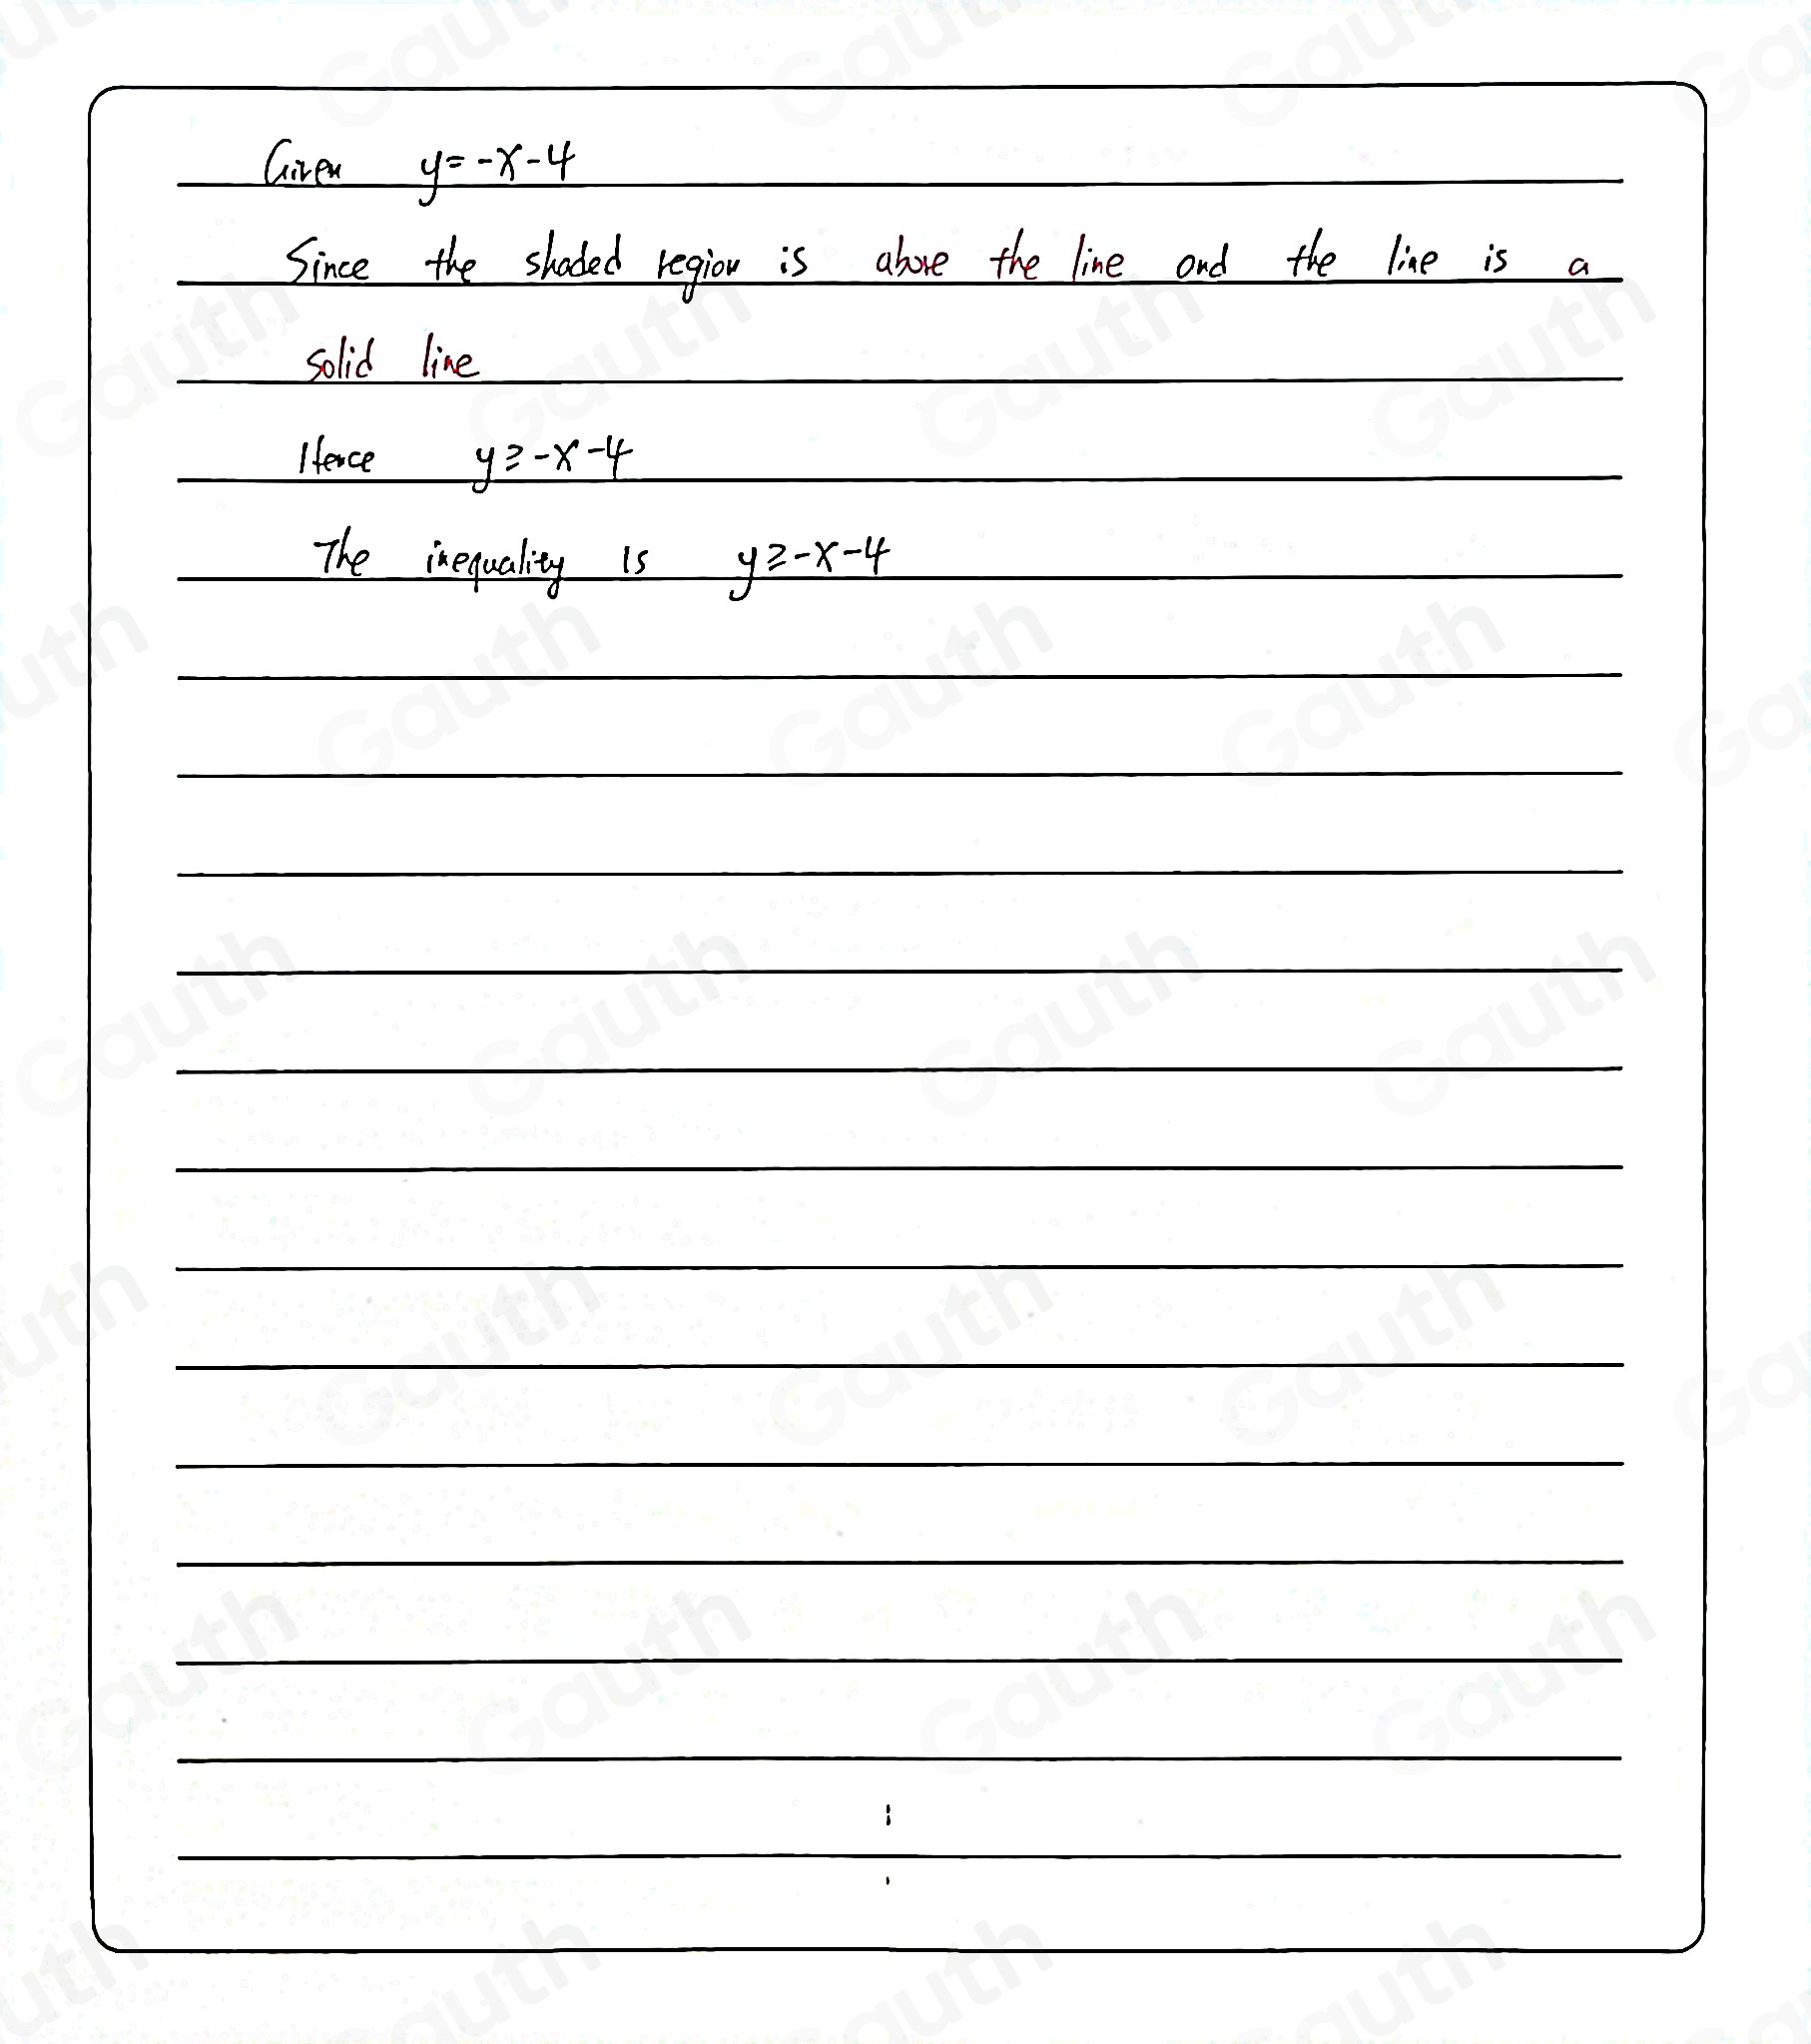 Given y = -x - 4
Since the shaded region is above the line and the line is a
solid line
Hence y ≥ -x - 4
The inequality is y ≥ -x - 4